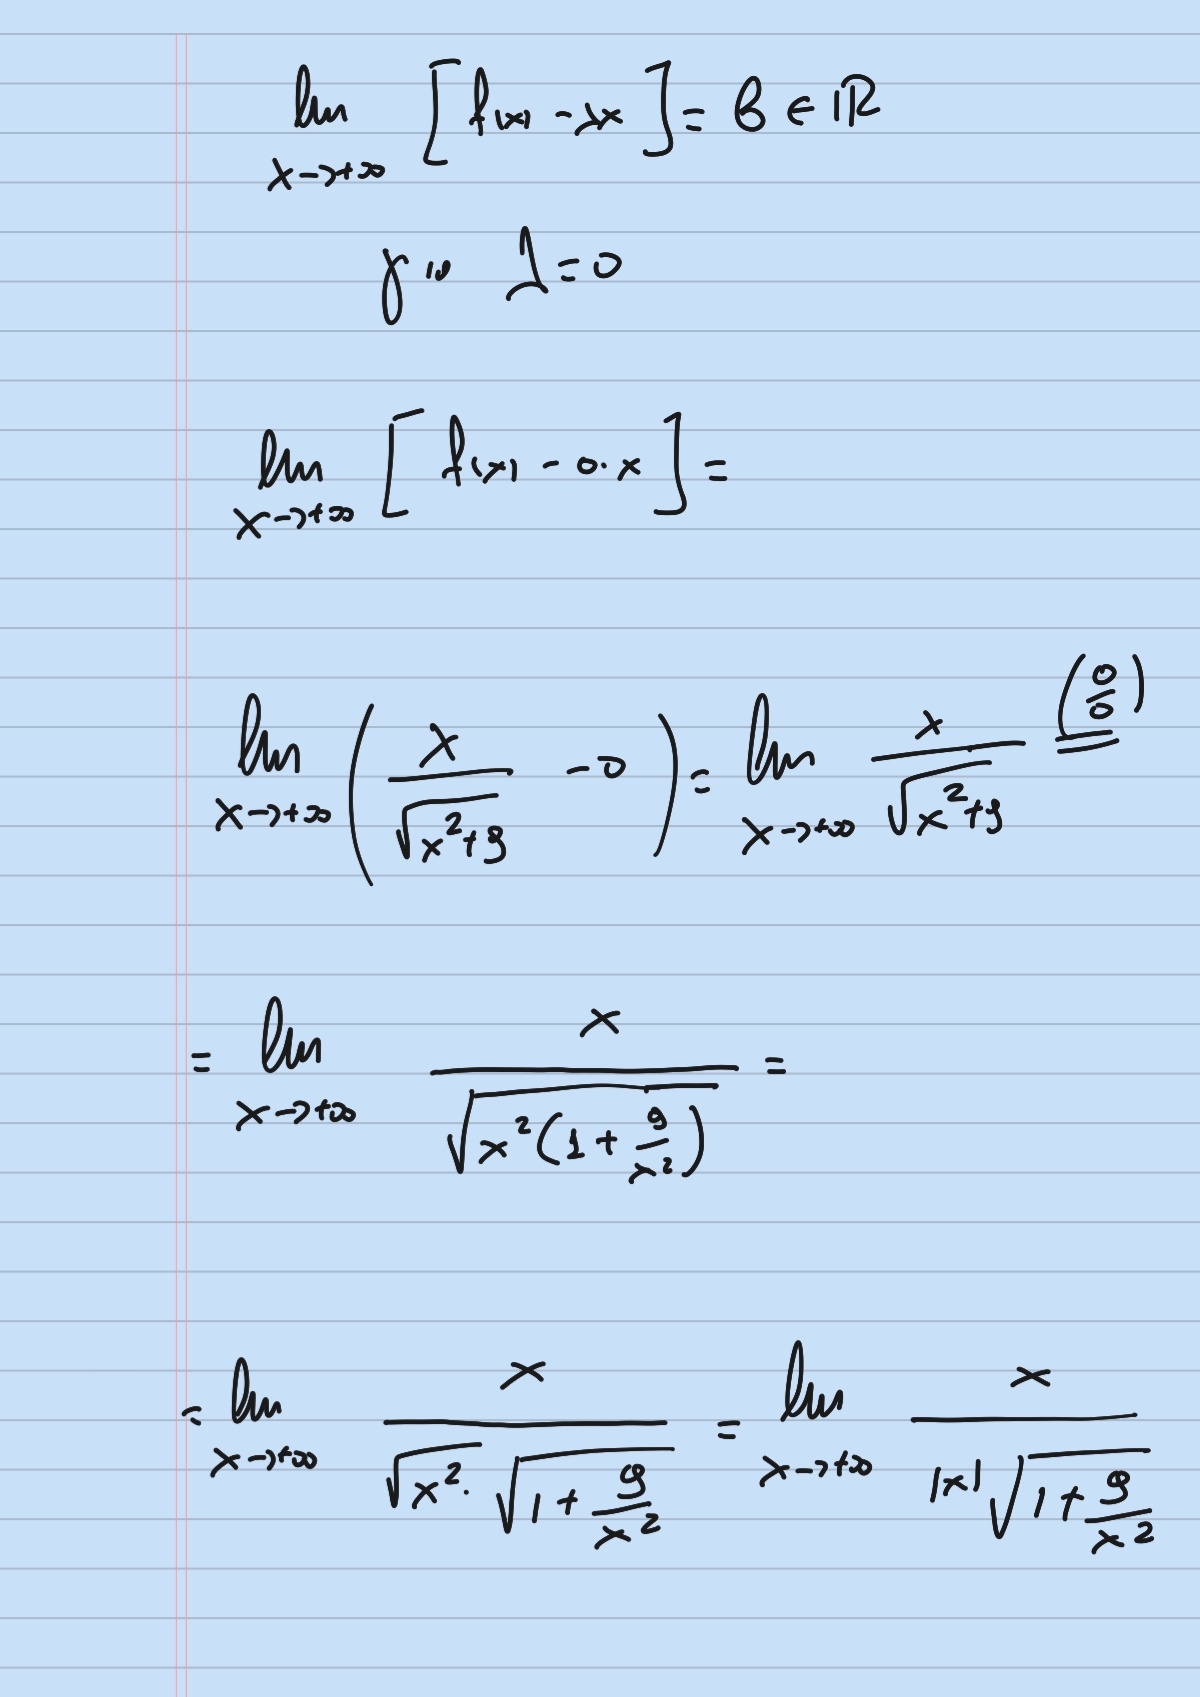 lim x→+∞ [f(x) - λx] = β ∈ ℝ
για λ=0
lim x→+∞ [f(x) - 0·x] =
lim x→+∞ (x/√(x²+9) - 0) = lim x→+∞ x/√(x²+9) (0/0)
= lim x→+∞ x/√(x²(1+9/x²)) =
= lim x→+∞ x/(√x²·√(1+9/x²)) = lim x→+∞ x/(|x|√(1+9/x²))